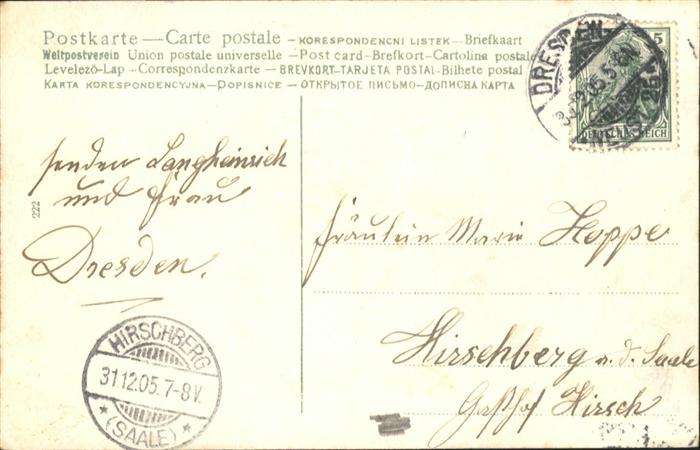 Postkarte — Carte postale - KORESPONDENCNI LISTEK - Briefkaart
Weltpostverein Union postale universelle - Post card - Brefkort - Cartolina postale
Levelező-Lap - Correspondenzkarte - BREVKORT - TARJETA POSTAL - Bilhete postal
KARTA KORESPONDENCYJNA - DOPISNICE - ОТКРЫТОЕ ПИСЬМО - ДОПИСНА КАРТА
DRESDEN
5
DEUTSCHES REICH
senden Langheinrich
und Frau
Dresden.
222
Fräulein Marie Hoppe
Hirschberg a. d. Saale
Gasthof Hirsch
HIRSCHBERG
31.12.05. 7-8V.
* (SAALE) *